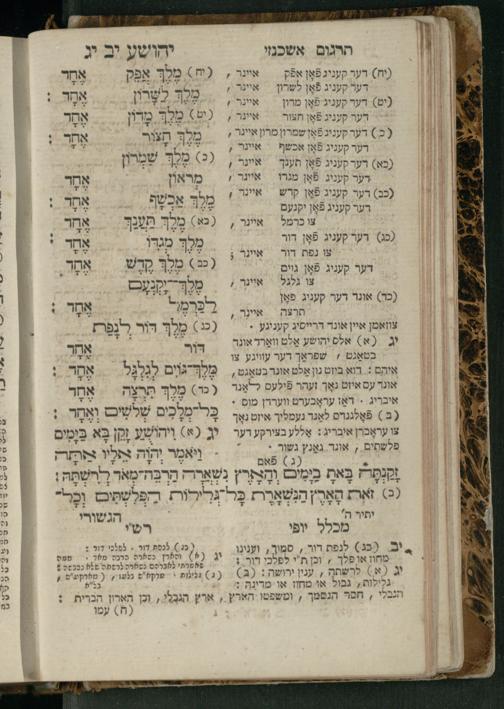 תרגום אשכנזי
יהושע יב יג
(יח) מֶלֶךְ אֲפֵק אֶחָד
מֶלֶךְ לַשָּׁרוֹן אֶחָד :
(יט) מֶלֶךְ מָדוֹן אֶחָד
מֶלֶךְ חָצוֹר אֶחָד :
(כ) מֶלֶךְ שִׁמְרוֹן
מְראוֹן אֶחָד
מֶלֶךְ אַכְשָׁף אֶחָד :
(כא) מֶלֶךְ תַּעְנַךְ אֶחָד
מֶלֶךְ מְגִדּוֹ אֶחָד :
(כב) מֶלֶךְ קֶדֶשׁ אֶחָד
מֶלֶךְ־יָקְנְעָם
לַכַּרְמֶל אֶחָד :
(כג) מֶלֶךְ דּוֹר לְנָפַת
דּוֹר אֶחָד
מֶלֶךְ־גּוֹיִם לְגִלְגָּל אֶחָד :
(כד) מֶלֶךְ תִּרְצָה אֶחָד
כָּל־מְלָכִים שְׁלֹשִׁים וְאֶחָד :
יג (א) וִיהוֹשֻׁעַ זָקֵן בָּא בַּיָּמִים
וַיֹּאמֶר יְהוָֹה אֵלָיו אַתָּה
זָקַנְתָּה בָּאתָ בַיָּמִים וְהָאָרֶץ נִשְׁאֲרָה הַרְבֵּה־מְאֹד לְרִשְׁתָּהּ :
(ב) זֹאת הָאָרֶץ הַנִּשְׁאָרֶת כָּל־גְּלִילוֹת הַפְּלִשְׁתִּים וְכָל־
הגשורי
(יח) דער קעניג פֿאן אפק איינר ,
דער קעניג פֿאן לשרון איינר ,
(יט) דער קעניג פֿאן מדון איינר ,
דער קעניג פֿאן חצור איינר ,
(כ) דער קעניג פֿאן שמרון מרון איינר ,
דער קעניג פֿאן אכשף איינר ,
(כא) דער קעניג פֿאן תענך איינר ,
דער קעניג פֿאן מגדו איינר ,
(כב) דער קעניג פֿאן קדש איינר ,
דער קעניג פֿאן יקנעם
צו כרמל איינר ,
(כג) דער קעניג פֿאן דור
צו נפת דור איינר ;
דער קעניג פֿאן גוים
צו גלגל איינר ,
(כד) אונד דער קעניג פֿאן
תרצה איינר ,
צוזאמן איין אונד דרייסיג קעניגע .
יג (א) אלס יהושע אלט ווארד אונד
בטאגט , שפראך דער עוויגע צו
איהם : דוא ביזט נון אלט אונד בטאגט ,
אונד עס איזט נאך זעהר פֿילעס לאנד
איבריג . דאז עראבערט ווערדן מוס .
(ב) פֿאלגנדס לאנד נעמליך איזט נאך
צו עראברן איבריג : אללע בצירקע דער
פלשתים , אונד גאנץ גשור .
(ג) פֿאם
מכלל יופי
יתיר ה'
רש"י
יב (כג) לנפת דור , סמוך , וענינו
מחוז או פלך , וכן ת"י לפלכי דור :
יג (א) לרשתה , ענין ירושה : (ב)
גלילות , גבול או מחוז או מדינה :
הגבלי , חסר הנסמך , ומשפטו הארץ , ארץ הגבלי , וכן הארון הברית :
(ח) עמו
(כג) לנפת דור . לפלכי דור :
יג (א) והארץ נשארה הרבה מאד .